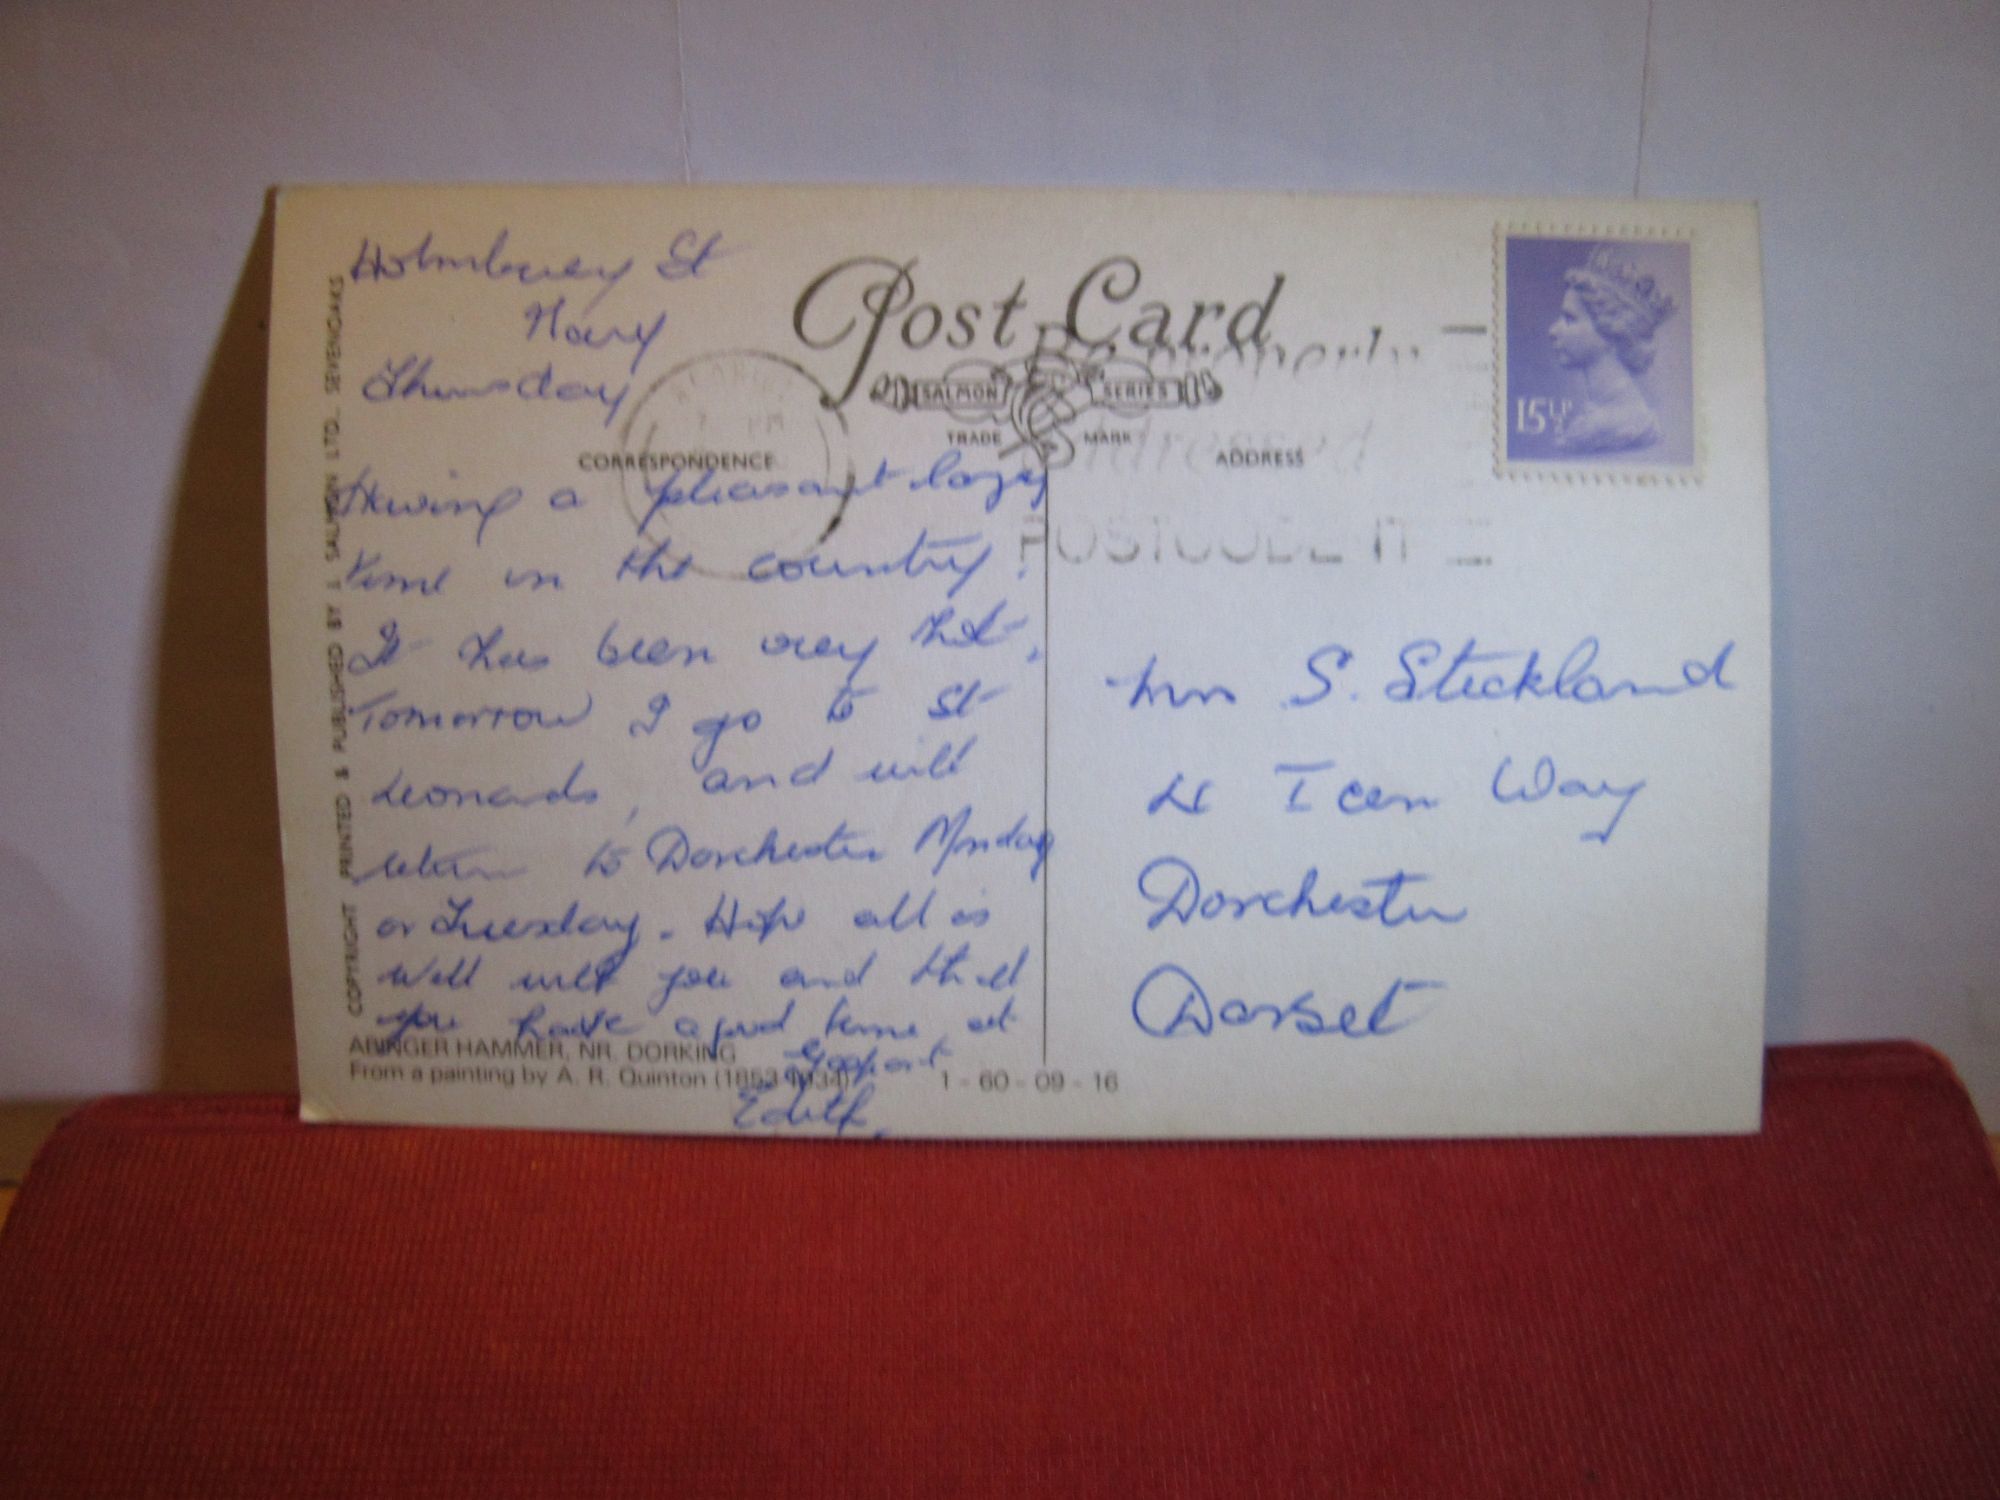 Holmbury St
Mary
Thursday
Post Card
SALMON SERIES
TRADE MARK
CORRESPONDENCE
ADDRESS
Having a pleasant lazy
time in the country.
It has been very hot.
Tomorrow I go to St
Leonards, and will
return to Dorchester Monday
or Tuesday. Hope all is
well with you and that
you have a good time at
Gosport
Edith.
properly
addressed
POSTCODE IT
15½P
Mrs S. Stickland
4 Icen Way
Dorchester
Dorset
COPYRIGHT PRINTED & PUBLISHED BY J SALMON LTD., SEVENOAKS
ABINGER HAMMER, NR. DORKING
From a painting by A. R. Quinton (1853-1934) 1 - 60 - 09 - 16